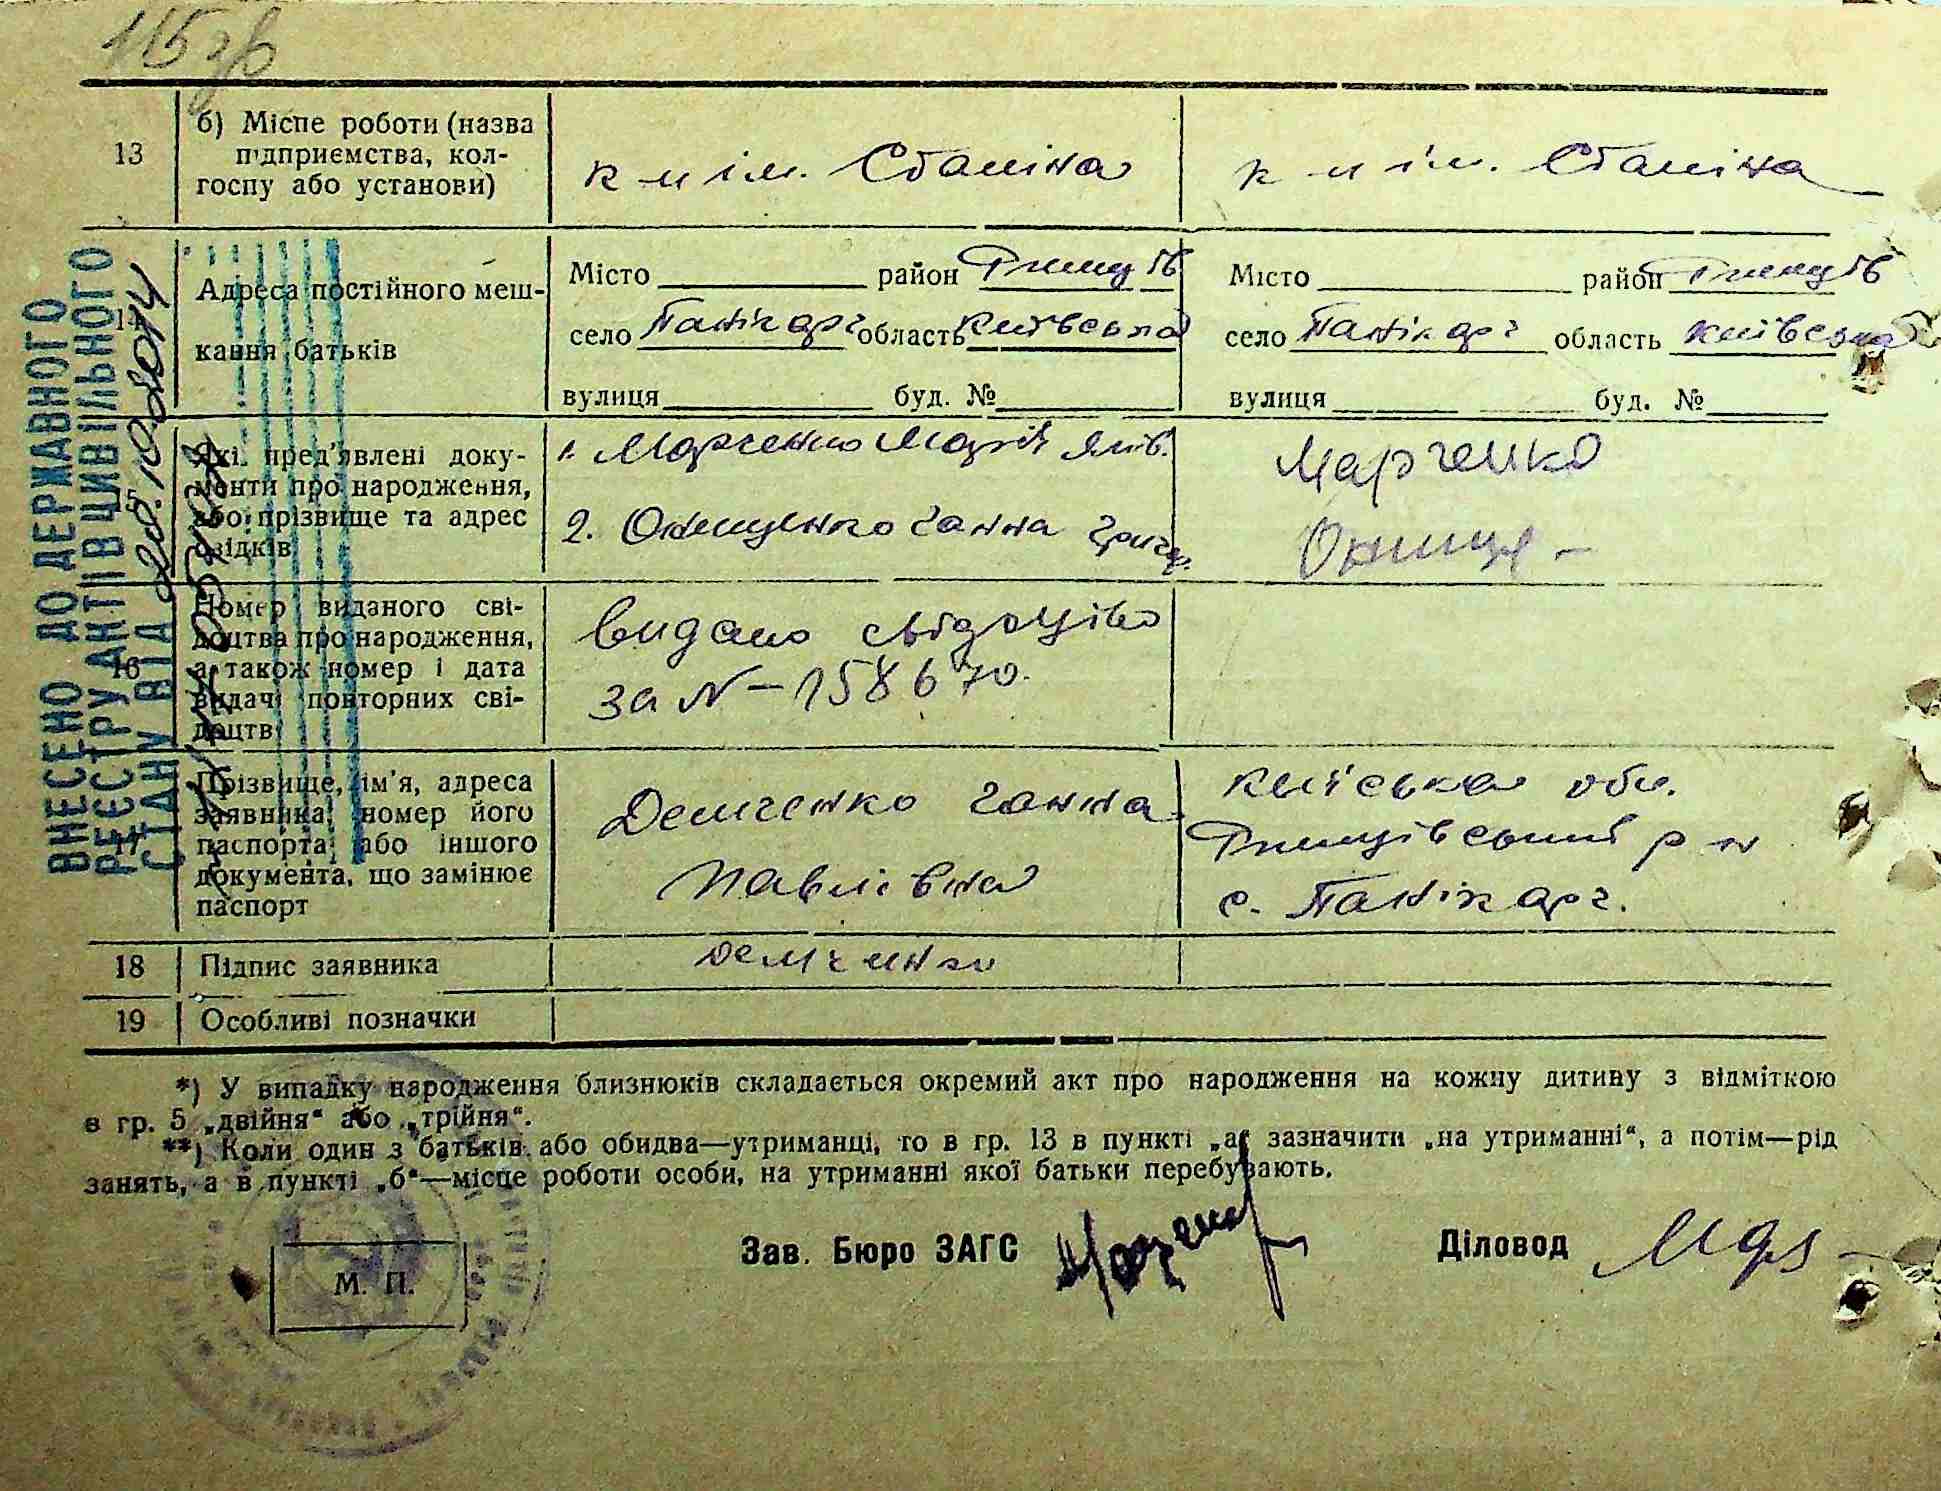 115зв
13
б) Місце роботи (назва
підприємства, кол-
госпу або установи)
к п ім. Сталіна
к п ім. Сталіна
14
Адреса постійного меш-
кання батьків
Місто район Ржищів
село Панікарч область Київська
вулиця буд. №
Місто район Ржищів
село Панікарч область Київська
вулиця буд. №
15
Які пред'явлені доку-
менти про народження,
або прізвище та адрес
свідків
1. Марченко Марія Яків.
2. Онищенко Ганна Григор.
Марченко
16
Номер виданого сві-
доцтва про народження,
а також номер і дата
видачі повторних сві-
доцтв
видано свідоцтво
за N-158670.
17
Прізвище, ім'я, адреса
заявника, номер його
паспорта, або іншого
документа, що замінює
паспорт
Демченко Ганна
Павлівна
Київська обл.
Ржищівський р н
с. Панікарч.
18
Підпис заявника
Демченко
19
Особливі позначки
*) У випадку народження близнюків складається окремий акт про народження на кожну дитину з відміткою
в гр. 5 „двійня“ або „трійня“.
**) Коли один з батьків або обидва—утриманці, то в гр. 13 в пункті „а“ зазначити „на утриманні“, а потім—рід
занять, а в пункті „б“—місце роботи особи, на утриманні якої батьки перебувають.
Зав. Бюро ЗАГС
Діловод
М. П.
ВНЕСЕНО ДО ДЕРЖАВНОГО
РЕЄСТРУ АКТІВ ЦИВІЛЬНОГО
СТАНУ ВІД 20.10.2014